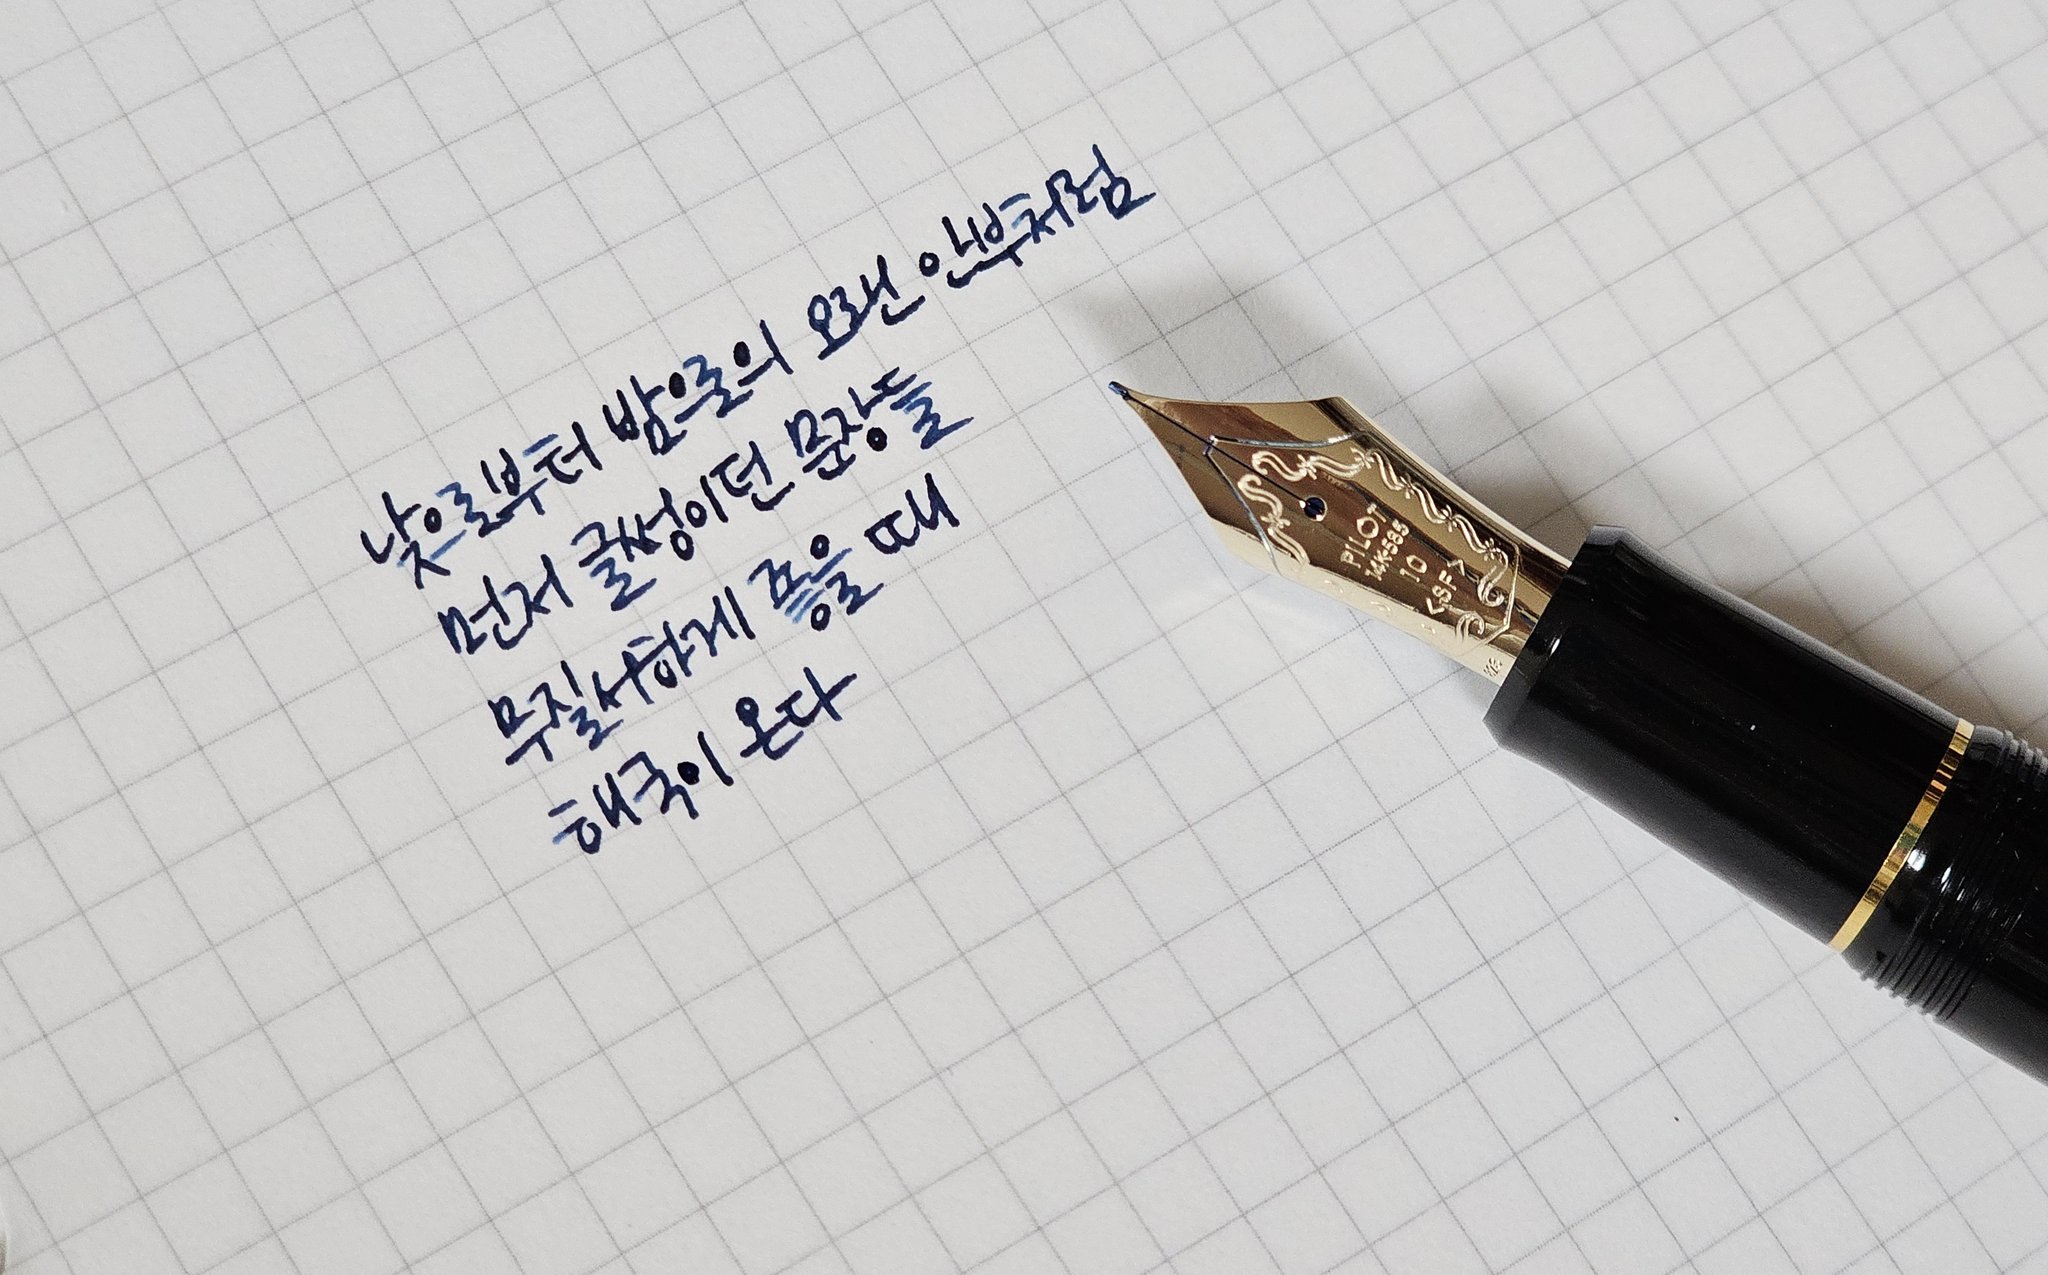 낮으로부터 밤으로의 오랜 안부처럼
먼저 글썽이던 문장들
무질서하게 졸을 때
해국이 온다
PILOT
14K-585
10
<SF>